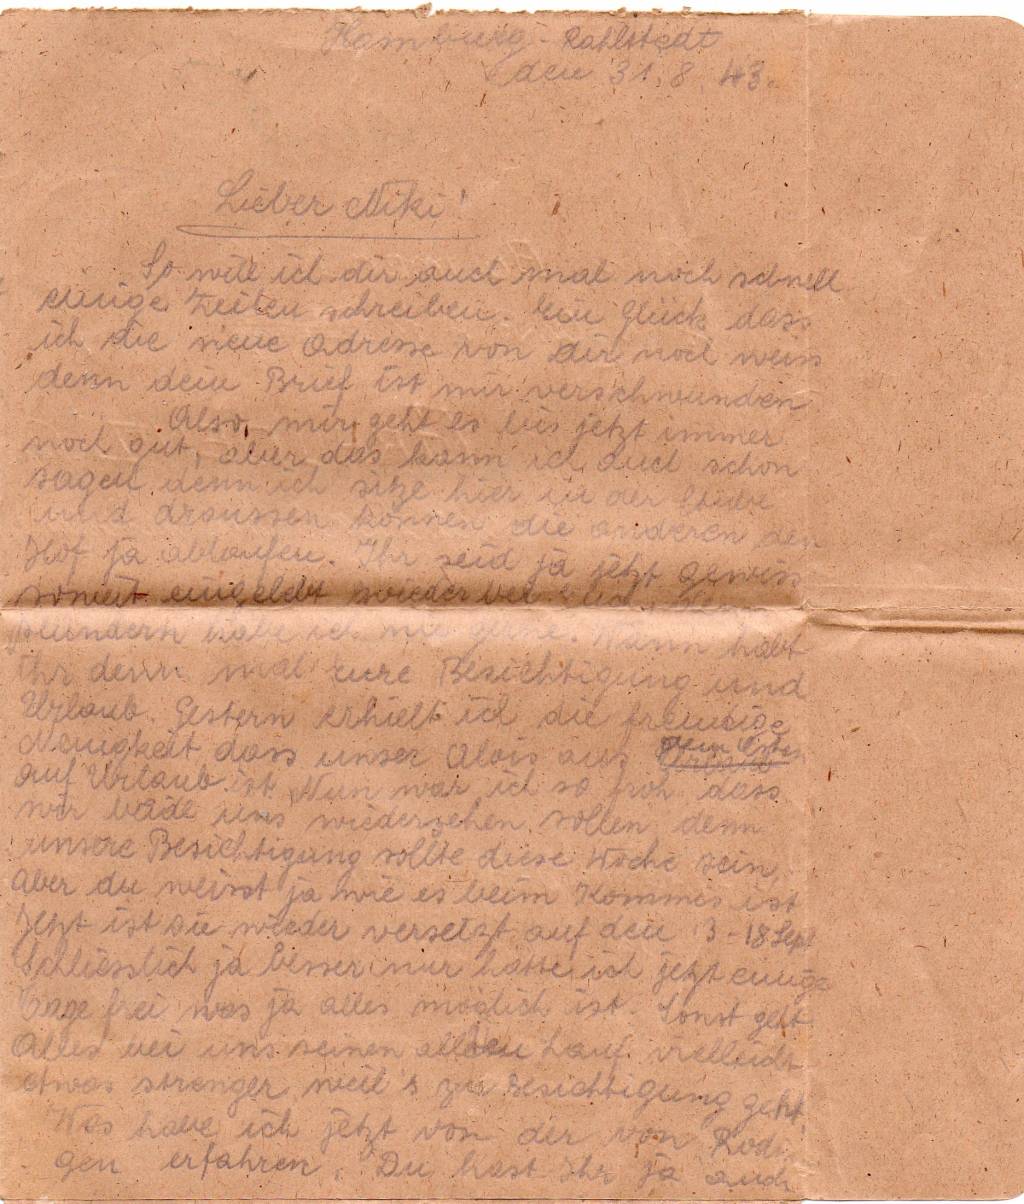 Hamburg-Rahlstedt
den 31.8.43.
Lieber Niki!
So will ich dir auch mal noch schnell
einige Zeilen schreiben. Ein Glück dass
ich die neue Adresse von dir noch weiss
denn dein Brief ist mir verschwunden
Also, mir geht es bis jetzt immer
noch gut, aber das kann ich auch schon
sagen denn ich sitze hier in der Stube
und draussen können die anderen den
Hof ja ablaufen. Ihr seid ja jetzt gewiss
soweit eingelebt wieder bei
habe ich nie gerne. Wann habt
Ihr denn mal eure Besichtigung und
Urlaub. Gestern erhielt ich die freudige
Neuigkeit dass unser Alois aus dem Osten
auf Urlaub ist. Nun war ich so froh dass
wir beide uns wiedersehen sollen denn
unsere Besichtigung sollte diese Woche sein,
aber du weisst ja wie es beim Kommis ist
Jetzt ist sie wieder versetzt auf den 13-18 Sept
Schliesslich ja besser nur hatte ich jetzt einige
Tage frei was ja alles möglich ist. Sonst geht
Alles bei uns seinen alten Lauf vielleicht
etwas strenger weil's zur Besichtigung geht.
Was habe ich jetzt von der von Rodi
gen erfahren. Du hast Ihr ja auch